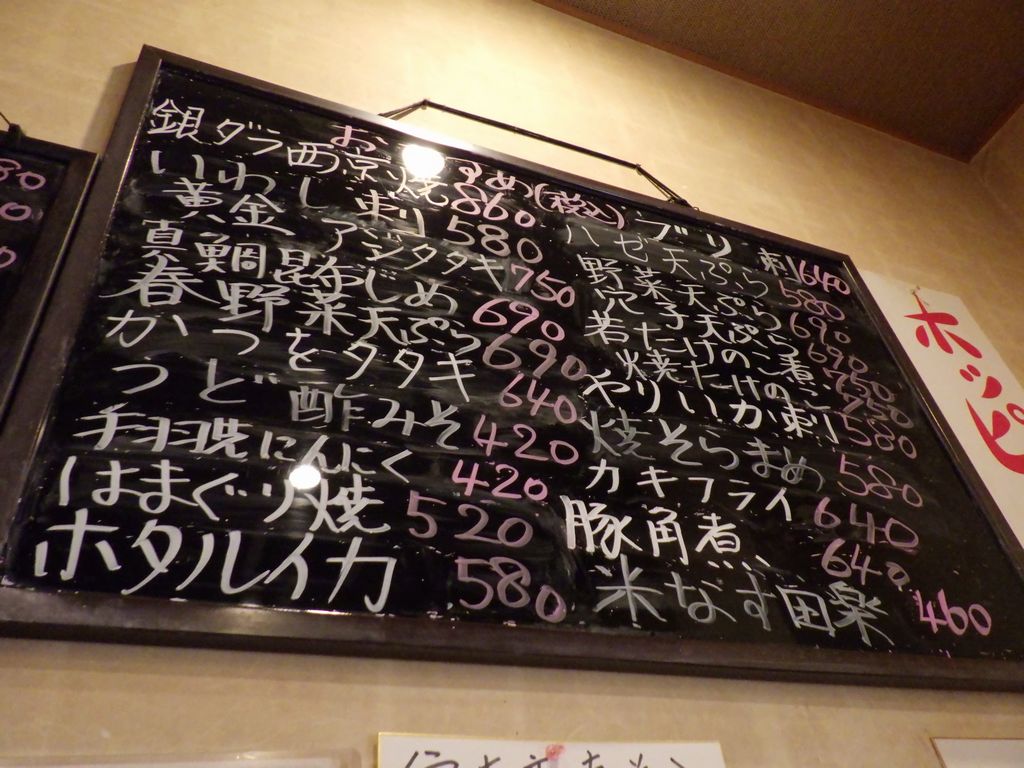 おすすめ(税込)
銀ダラ西京焼 860
いわし刺 580
黄金アジタタキ 750
真鯛昆布じめ 690
春野菜天ぷら 690
かつをタタキ 640
うど酢みそ 420
手羽先にんにく 420
はまぐり焼 520
ホタルイカ 580
ブリ刺 640
ハゼ天ぷら 580
野菜天ぷら 690
穴子天ぷら 690
若たけのこ煮 750
焼たけのこ 750
やりいか刺 580
焼そらまめ 580
カキフライ 640
豚角煮 640
米なす田楽 460
ホッピ